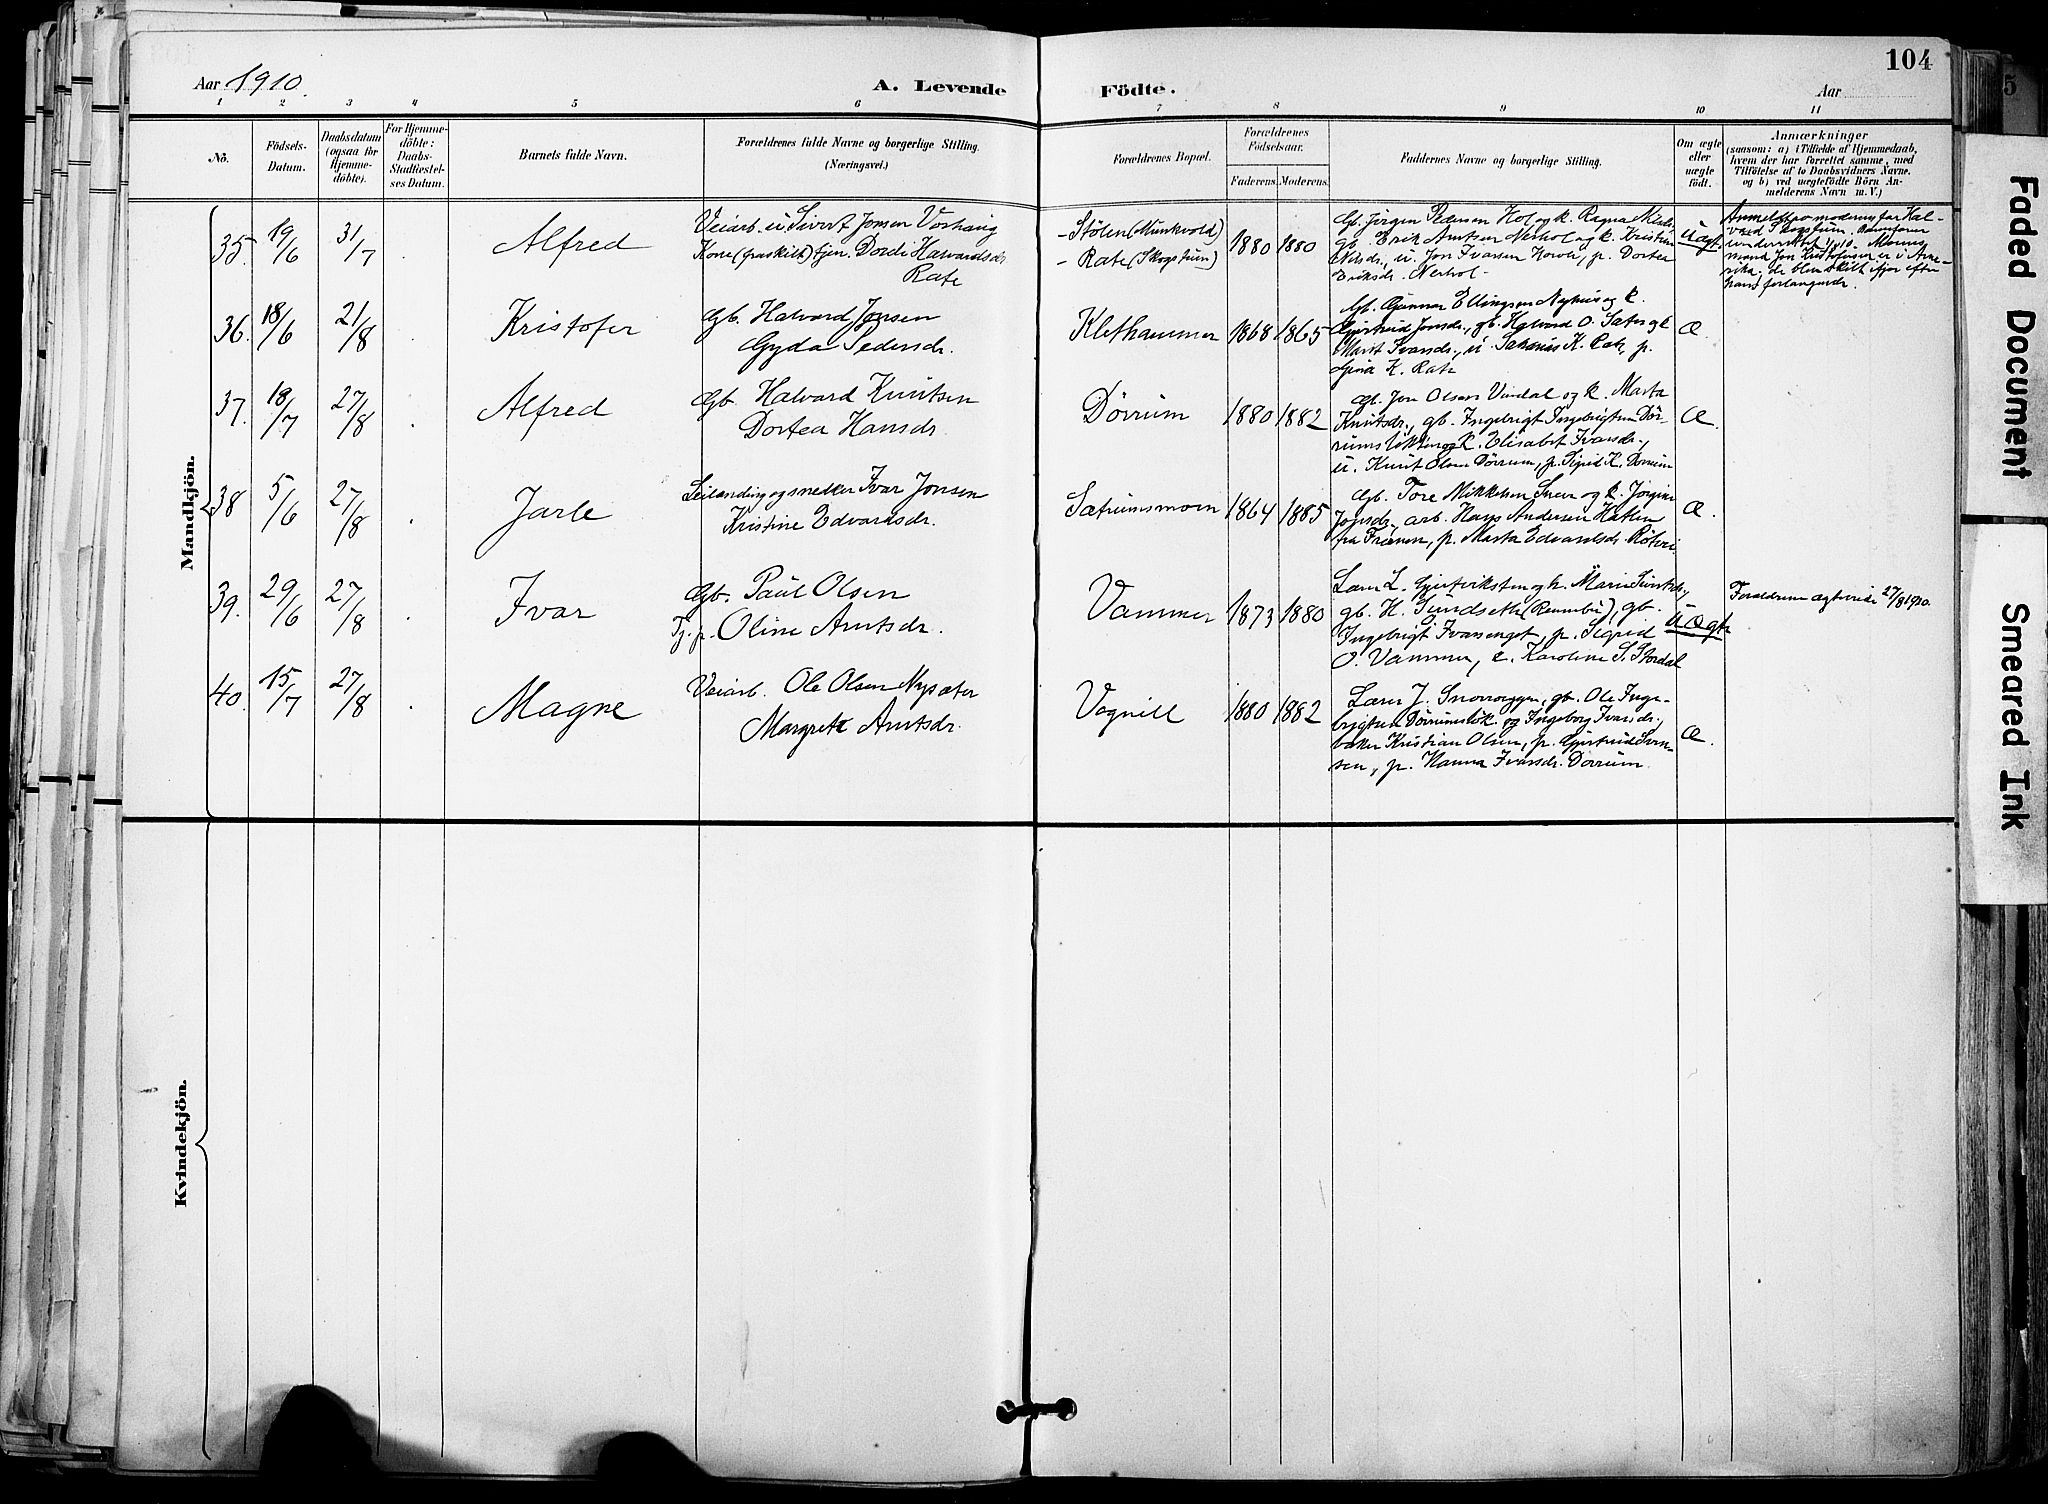 104
Aar 1910.
A. Levende Födte.
Aar
1 2 3 4 5 6 7 8 9 10 11
No.
Födsels-
Datum.
Daabsdatum
(ogsaa for
Hjemme-
döbte).
For Hjemme-
döbte:
Daabs-
Stadfæstel-
ses Datum.
Barnets fulde Navn.
Forældrenes fulde Navne og borgerlige Stilling.
(Næringsvei.)
Forældrenes Bopæl.
Forældrenes
Födselsaar.
Faderens. Moderens.
Faddernes Navne og borgerlige Stilling.
Om ægte
eller
uægte
födt.
Anmærkninger
(saasom: a) i Tilfælde af Hjemmedaab,
hvem der har forrettet samme, med
Tilföielse af to Daabsvidners Navne.
og b) ved uægtefödte Börn An-
melderens Navn m. V.)
Mandkjön.
35. 19/6 31/7 Alfred
Veiarb. u Sivert Jonsen Vorhaug
Kone (fraskilt) tjen. Dordi Halvardsdr.
Rate
- Stölen (Munkvold)
- Rate (Skogstum)
1880 1880
Gb. Jörgen Pedersen Hol og k. Ragna Nielsd.,
gb. Erik Arntsen Nerhol og k. Kristine
Nelsdr., u. Jon Ivarsen Horvli, p. Dortea
Eriksdr. Nerhol.
Uægt.
Anmeldt av moderens far Hal-
vard Skogstum.
mand Jon Kristofersen er i Ame-
rika; de blev skilt ifjor efter
hans forlangende.
36. 18/6 21/8 Kristofer
Gb. Halvard Jonsen
Gyda Pedersdr.
Klethammer 1868 1865
Gb. Gunnar Ellingsen Nyhus og k.
Gjertrud Jonsdr., gb. Halvard O. Sæter og k
Marit Ivarsdr., u K. Rate, p.
Gina K. Rate
Æ.
37. 18/7 27/8 Alfred
Gb. Halvard Knutsen
Dortea Hansdr.
Dörrum 1880 1882
Gb. Jon Olsen Vindal og k. Marta
Knutsdr., gb. Ingebrigt Ingebrigtsen Dör-
rumslökken og k. Elisabet Ivarsdr.,
u. Knut Olsen Dörrum, p. Sigrid K. Dörrum
Æ.
38 5/6 27/8 Jarle
Leilending og snedker Ivar Jonsen
Kristine Edvardsdr.
Sætrumsmoen 1864 1885
Gb. Tore Mikkelsen Sneve og k. Jörgine
Jonsdr., arb. Hans Andersen Hatlen
fra Frænen, p. Marta Edvardsdr. Rötvei
Æ.
39. 29/6 27/8 Ivar
Gb. Paul Olsen
Tj. p. Oline Arntsdr.
Vammer 1873 1880
Lærer L. og k. Marie Sivertsdr.,
gb. H. Sundseth (Rennebu), gb.
Ingebrigt Ivarsenget, p. Sigrid
O. Vammer, e. Karoline S. Stordal
Uægte
Forældrene egteviede 27/8 1910.
40. 15/7 27/8 Magne
Veiarb. Ole Olsen Nysæter
Margrete Arntsdr.
Vognill 1880 1882
Lærer J. Snorroeggen, gb. Ole Inge-
brigtsen Dörrumslök. og Ingeborg Ivarsdr.,
baker Kristian Olsen, p. Gjertrud Sven-
sen, p. Hanna Ivarsdr. Dörrum.
Æ.
Kvindekjön.
Faded Document
Smeared Ink
5